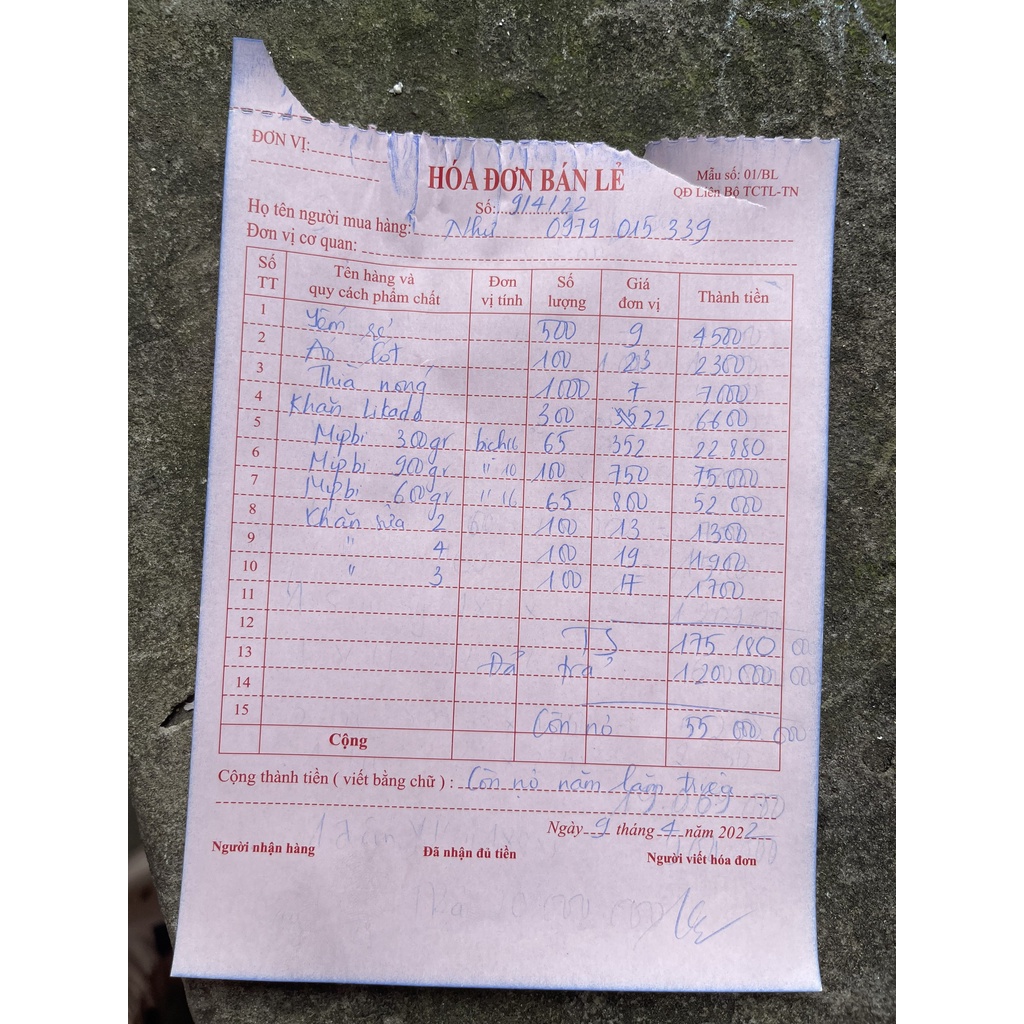 ĐƠN VỊ:
HÓA ĐƠN BÁN LẺ
Mẫu số: 01/BL
QĐ Liên Bộ TCTL-TN
Số: 9/4/22
Họ tên người mua hàng: Như 0979 015 339
Đơn vị cơ quan:
Số TT Tên hàng và quy cách phẩm chất Đơn vị tính Số lượng Giá đơn vị Thành tiền
1 Yếm sơ 500 9 4500
2 Áo cot 100 23 2300
3 Thìa nóng 1000 7 7000
4 Khăn likado 300 22 6600
5 Mipbi 300gr bịch16 65 352 22 880
6 Mipbi 900gr " 10 100 750 75 000
7 Mipbi 600gr " 16 65 800 52 000
8 Khăn sữa 2 100 13 1300
9 " 4 100 19 1900
10 " 3 100 17 1700
11
12 TS 175 180
13 Đã trả 120 000 000
14
15 Còn nợ 55 000 000
Cộng
Cộng thành tiền ( viết bằng chữ ) : Còn nợ năm lăm triệu
Ngày 9 tháng 4 năm 2022
Người nhận hàng Đã nhận đủ tiền Người viết hóa đơn